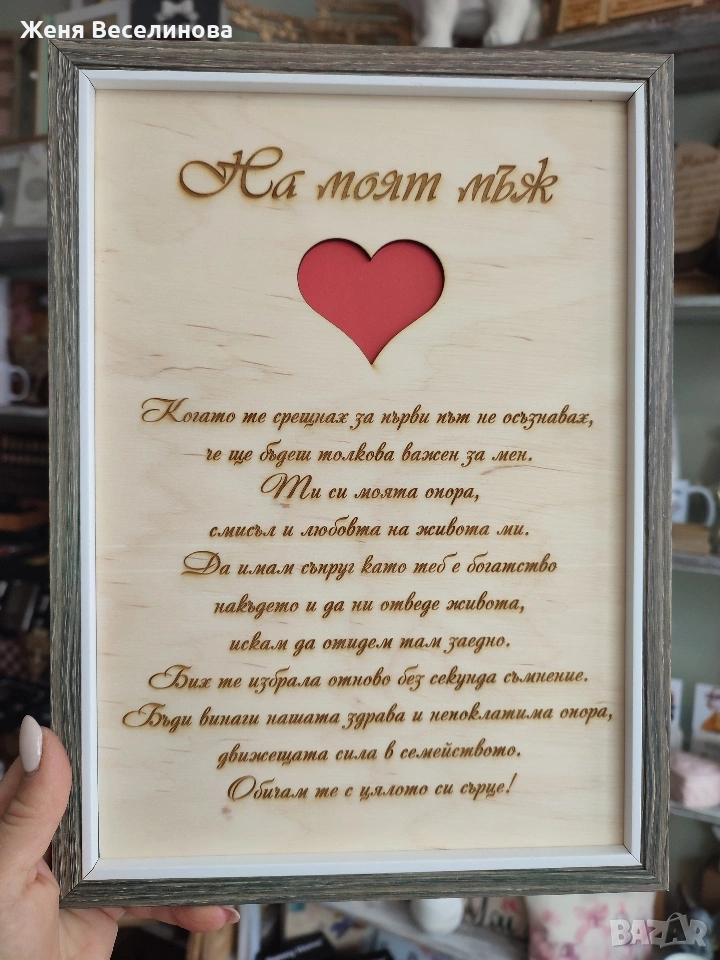 Женя Веселинова
На моят мъж
Когато те срещнах за първи път не осъзнавах,
че ще бъдеш толкова важен за мен.
Ти си моята опора,
смисъл и любовта на живота ми.
Да имам съпруг като теб е богатство
накъдето и да ни отведе живота,
искам да отидем там заедно.
Бих те избрала отново без секунда съмнение.
Бъди винаги нашата здрава и непоклатима опора,
движещата сила в семейството.
Обичам те с цялото си сърце!
BAZAR